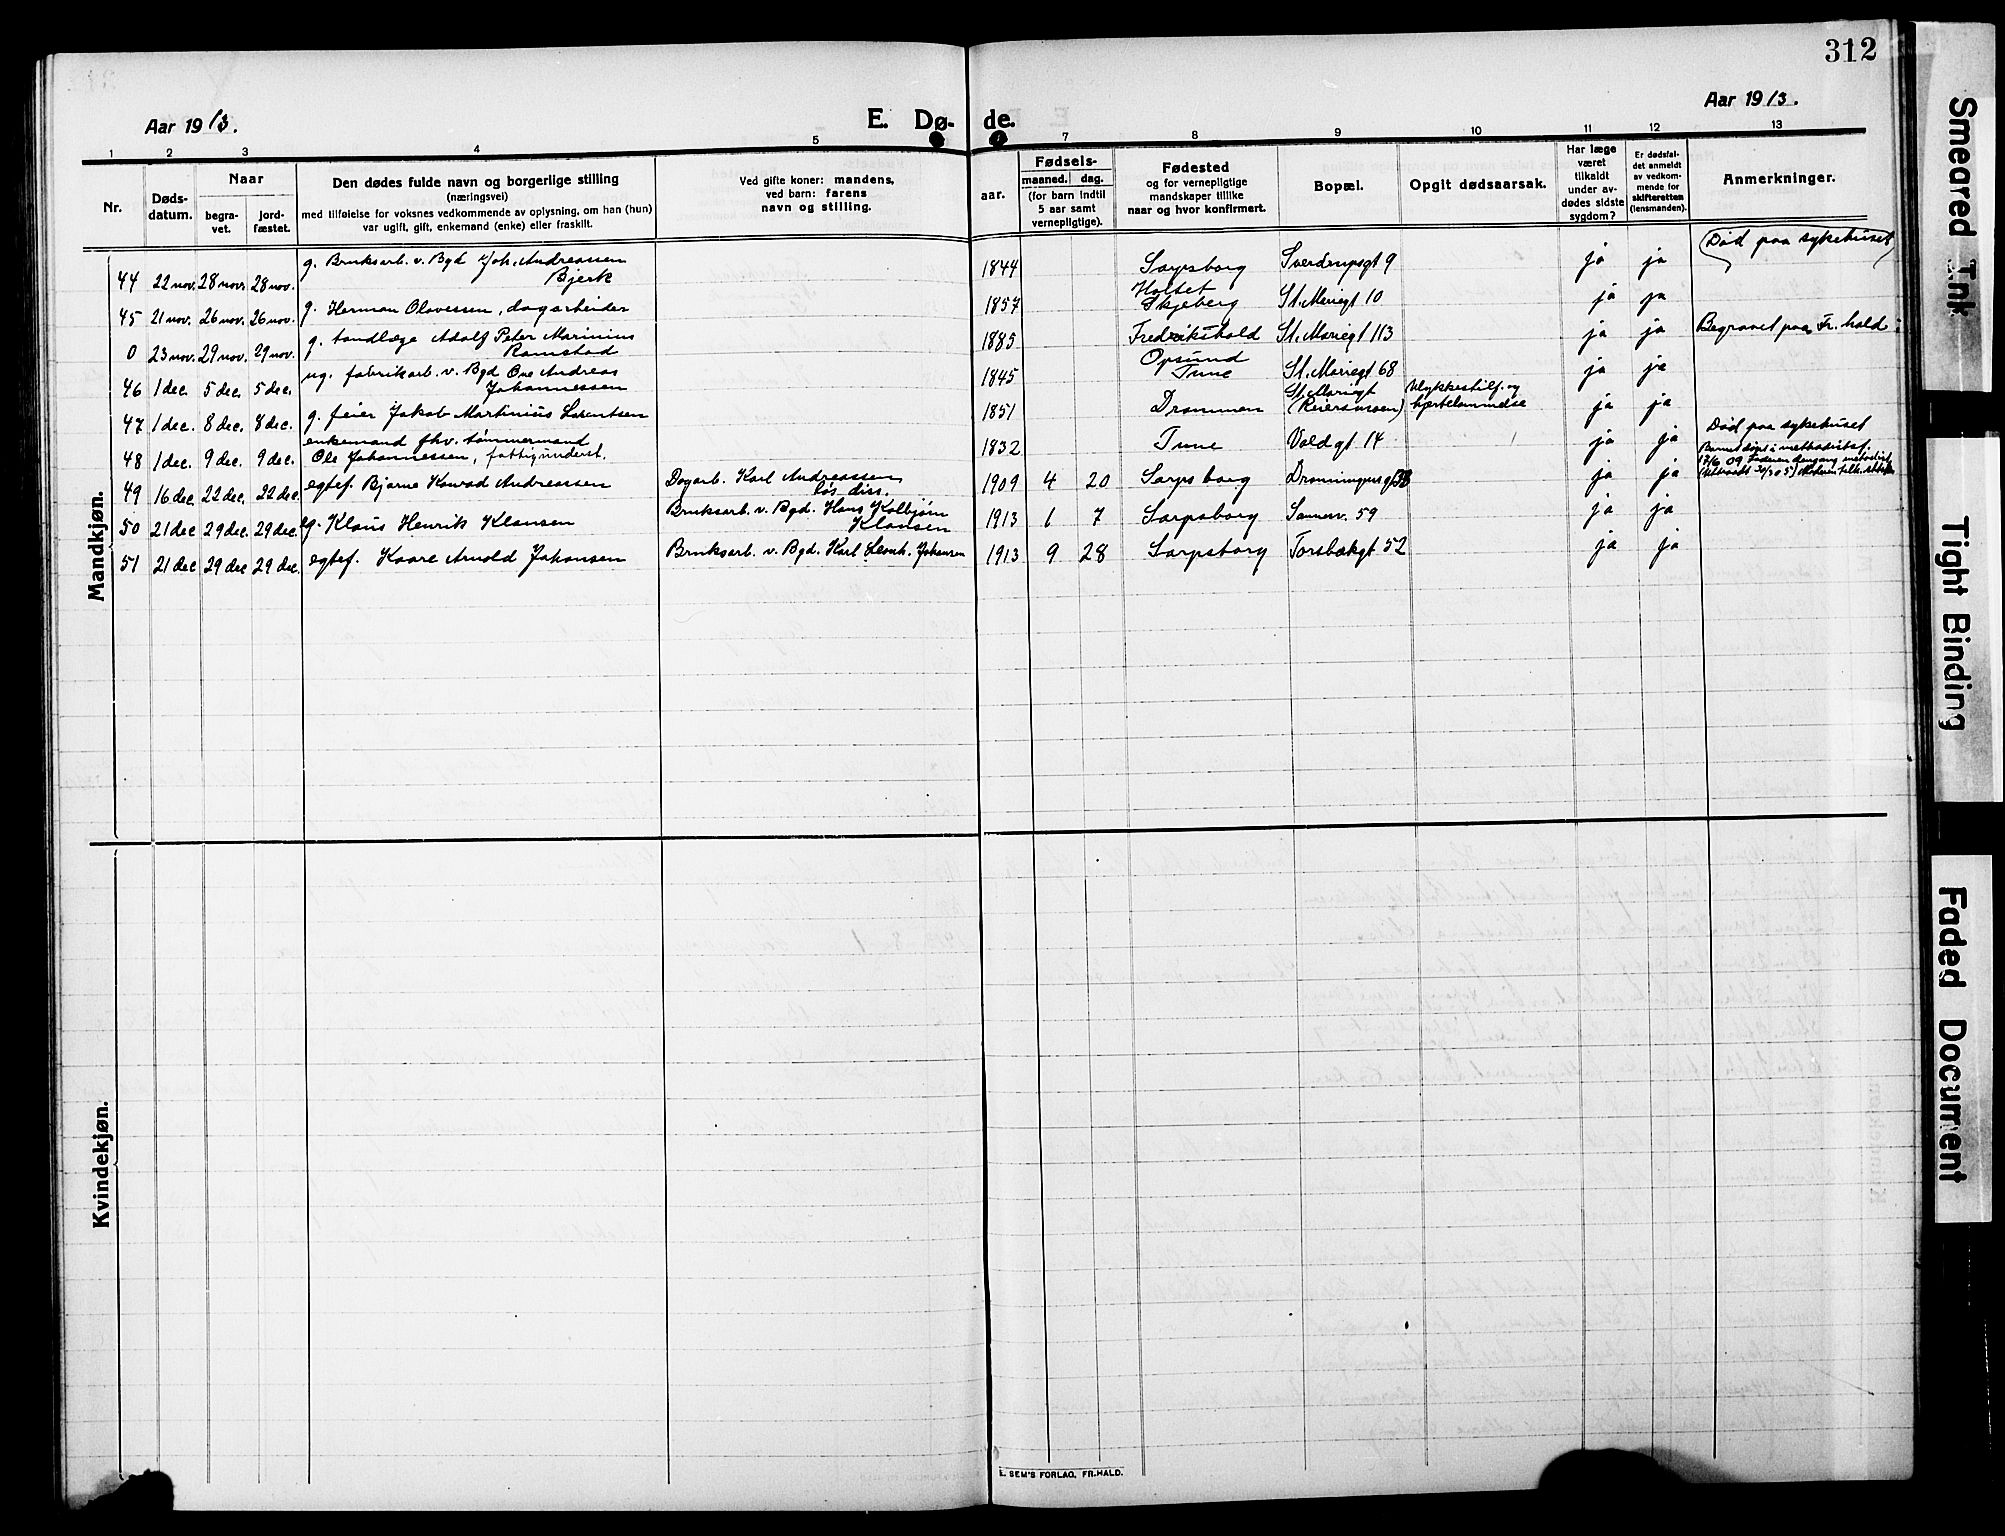 312
Aar 1913.
E. Dø-
de.
Aar 1913.
1 2 3 4 5 7 8 9 10 11 12 13
Nr.
Døds-
datum.
Naar
begra-
vet.
jord-
fæstet.
Den dødes fulde navn og borgerlige stilling
(næringsvei)
med tilføielse for voksnes vedkommende av oplysning, om han (hun)
var ugift, gift, enkemand (enke) eller fraskilt.
Ved gifte koner: mandens,
ved barn: farens
navn og stilling.
aar.
Fødsels-
maaned. dag.
(for barn indtil
5 aar samt
vernepligtige).
Fødested
og for vernepligtige
mandskaper tillike
naar og hvor konfirmert.
Bopæl.
Opgit dødsaarsak.
Har læge
været
tilkaldt
under av-
dødes sidste
sygdom?
Er dødsfal-
det anmeldt
av vedkom-
mende for
skifteretten
(lensmanden).
Anmerkninger.
Mandkjøn.
44 22 nov. 28 nov. 28 nov. g. Bruksarb. v. Bgd Joh. Andreassen
Bjerk
1844 Sarpsborg Sverdrupsgt 9 ja ja Død paa sykehuset
45 21 nov. 26 nov. 26 nov. g. Herman Olavessen, dagarbeider
1857 Holtet
Skjeberg St. Mariegt 10 ja ja
0 23 nov. 29 nov. 29 nov. g. tandlæge Adolf Peter Marinius
Ramstad
1885 Fredrikshald St. Mariegt 113 ja ja Begravet paa Fr.hald
46 1 dec. 5 dec. 5 dec. ug. fabrikarb. v. Bgd Ove Andreas
Johannessen
1845 Opsund
Tune St. Mariegt 68 ja ja
47 1 dec. 8 dec. 8 dec. g. feier Jakob Martinius Lorentsen
1851 Drammen St. Mariegt
(Reiersmoen) Ulykkestilf. og
hjertelammelse ja ja
48 1 dec. 9 dec. 9 dec. enkemand fhv. tømmermand
Ole Johannessen, fattigunderst.
1832 Tune Voldgt 14 ja ja Død paa sykehuset
49 16 dec. 22 dec. 22 dec. egtef. Bjarne Konrad Andreassen
Dagarb. Karl Andreassen
løs diss.
1909 4 20 Sarpsborg Dronningensgt 33 ja ja
50 21 dec 29 dec. 29 dec. eg. Klaus Henrik Klausen
Bruksarb. v. Bgd. Hans Kolbjørn
Klausen
1913 1 7 Sarpsborg Sannesv. 59 ja ja
51 21 dec 29 dec 29 dec. egtef. Kaare Arnold Johansen
Bruksarb. v. Bgd. Karl Leonh. Johansen
1913 9 28 Sarpsborg Torsbækgt 52 ja ja
Kvindekjøn.
E. SEM'S FORLAG, FR.HALD.
Smeared Ink
Tight Binding
Faded Document